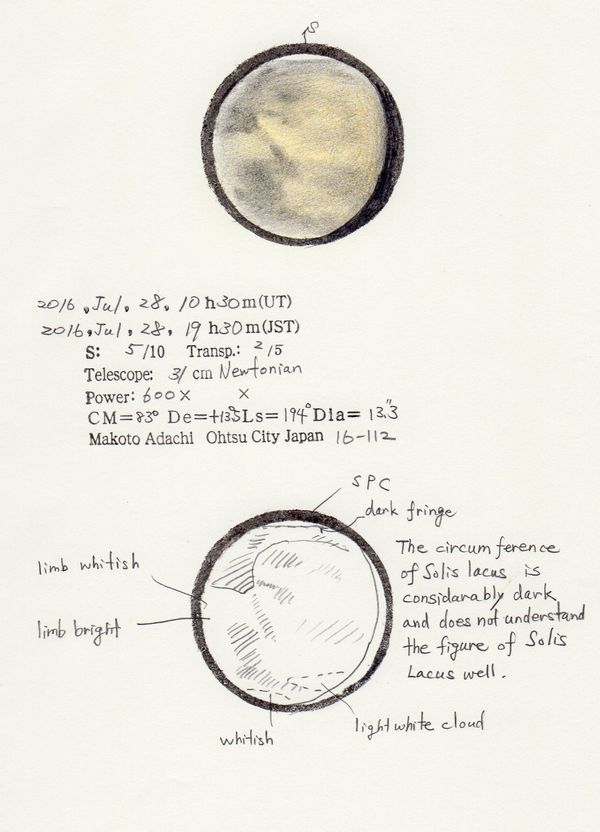 S
2016, Jul, 28, 10 h 30 m (UT)
2016, Jul, 28, 19 h 30 m (JST)
S: 5/10 Transp.: 2/5
Telescope: 31 cm Newtonian
Power: 600 X X
CM=83° De=+13° Ls=194° Dia=13".3
Makoto Adachi Ohtsu City Japan 16-112
SPC
dark fringe
limb whitish
limb bright
The circumference
of Solis lacus is
considarably dark
and does not understand
the figure of Solis
Lacus well.
light white cloud
whitish